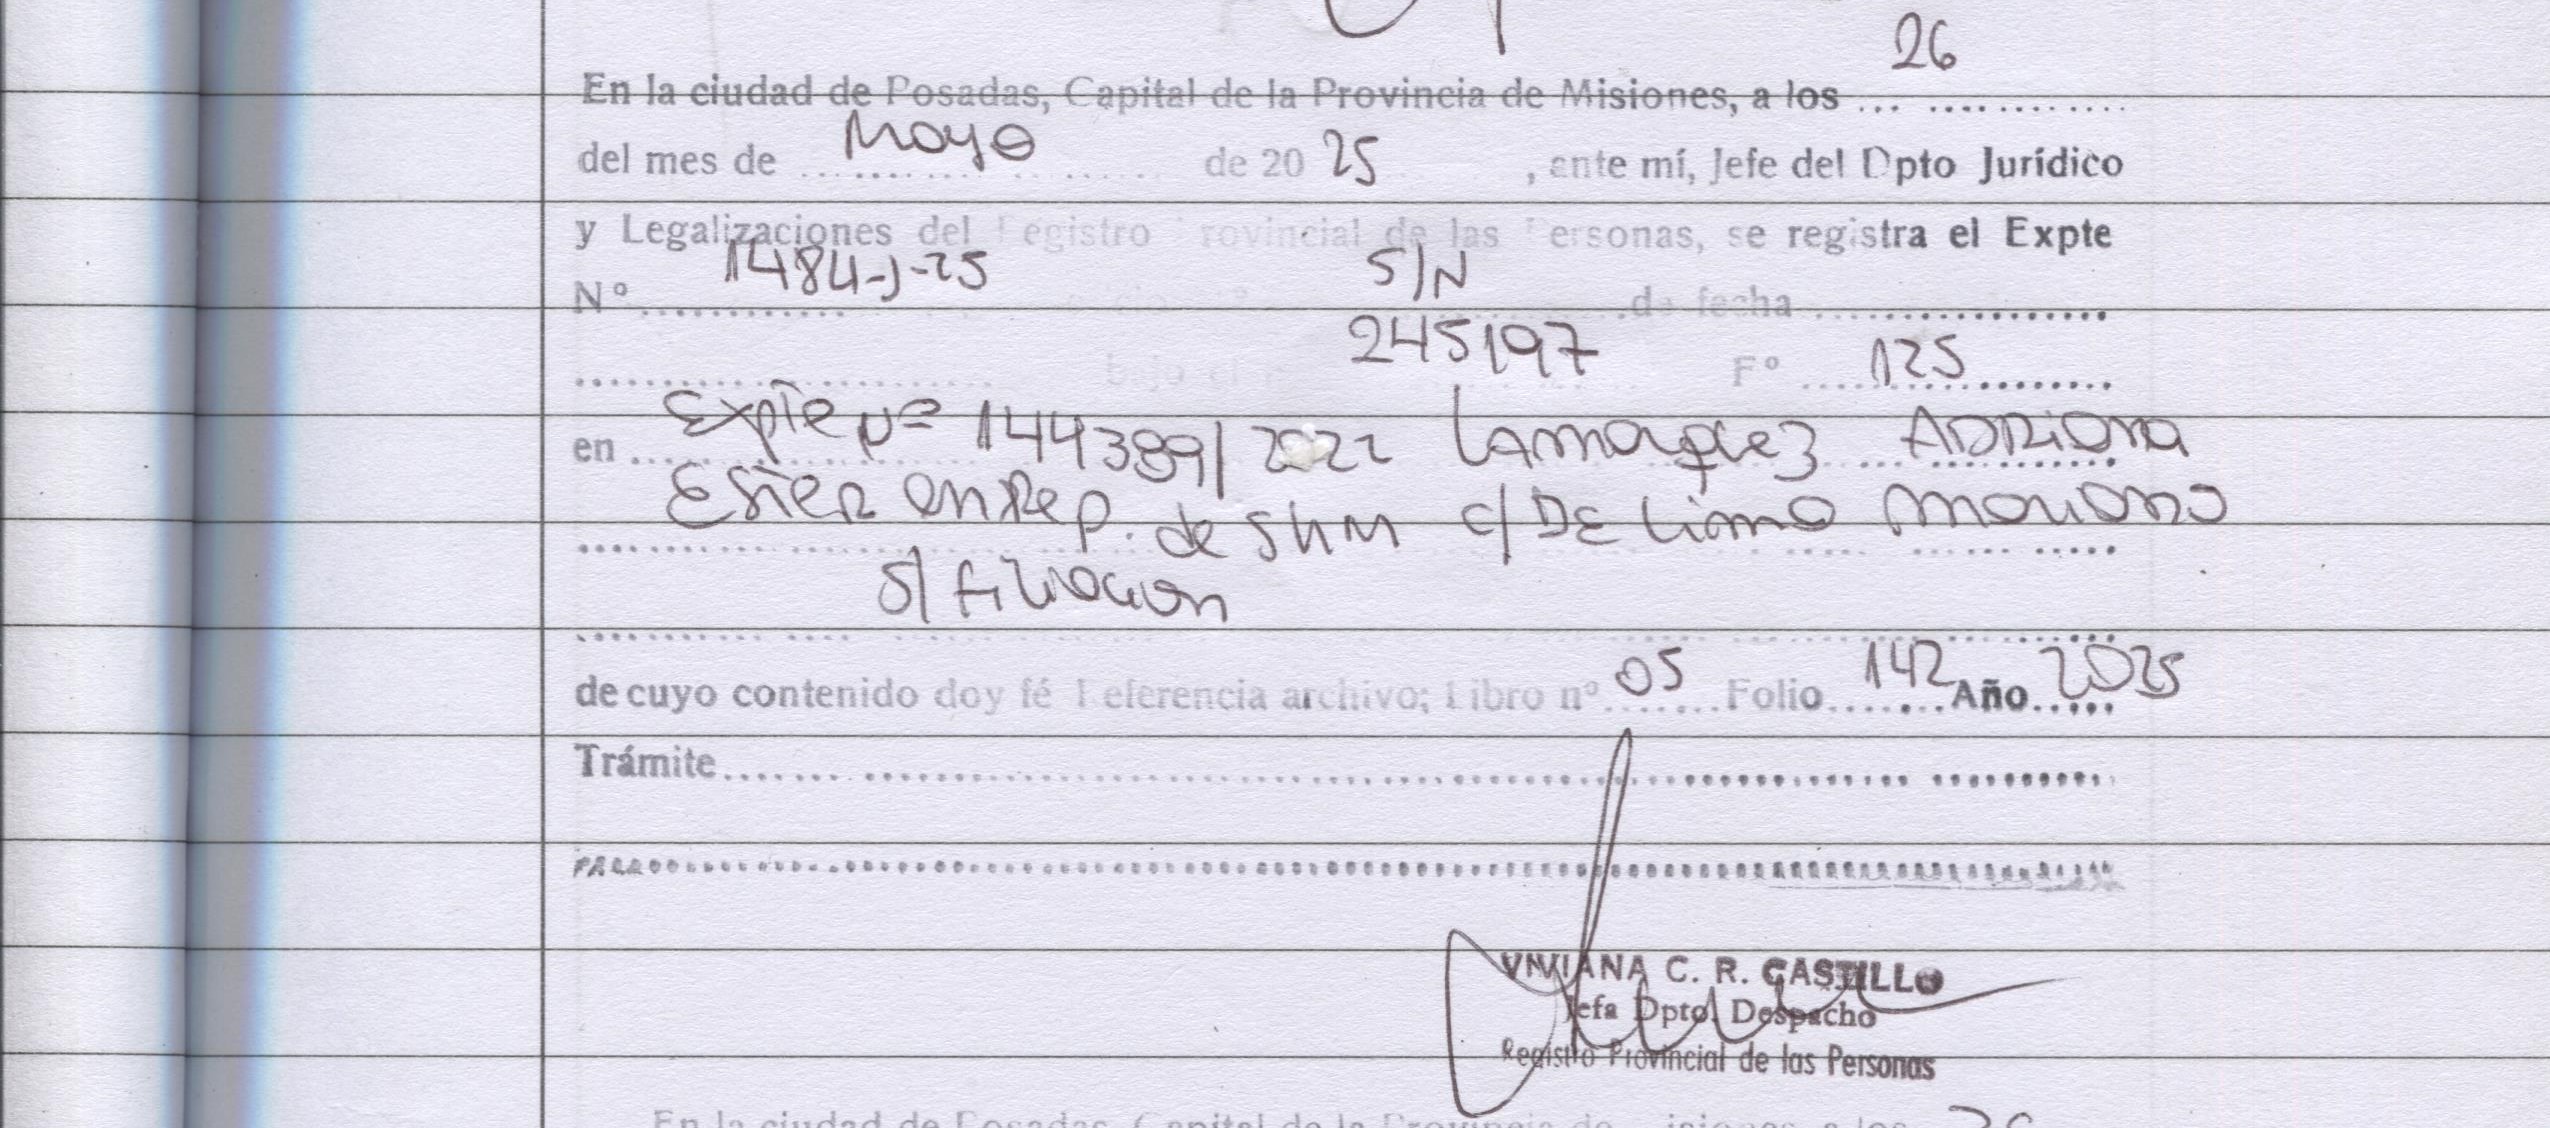 26
En la ciudad de Posadas, Capital de la Provincia de Misiones, a los ... ............
del mes de ... Mayo ... de 20 25 , ante mí, Jefe del Dpto Jurídico
y Legalizaciones del Registro Provincial de las Personas, se registra el Expte
Nº 1484-J-25 S/N de fecha ..................
bajo el 245197 Fº 125
en Expte Nº 144389/2022 Adriana
Ester en Rep. de SHM c/ DE Lima Mariano
S/ Filiacion
de cuyo contenido doy fé Referencia archivo; Libro nº 05 Folio 142 Año 2025
Trámite
VIVIANA C. R. CASTILLO
Jefa Dpto. Despacho
Registro Provincial de las Personas
En la ciudad de Posadas, Capital de la Provincia de Misiones, a los